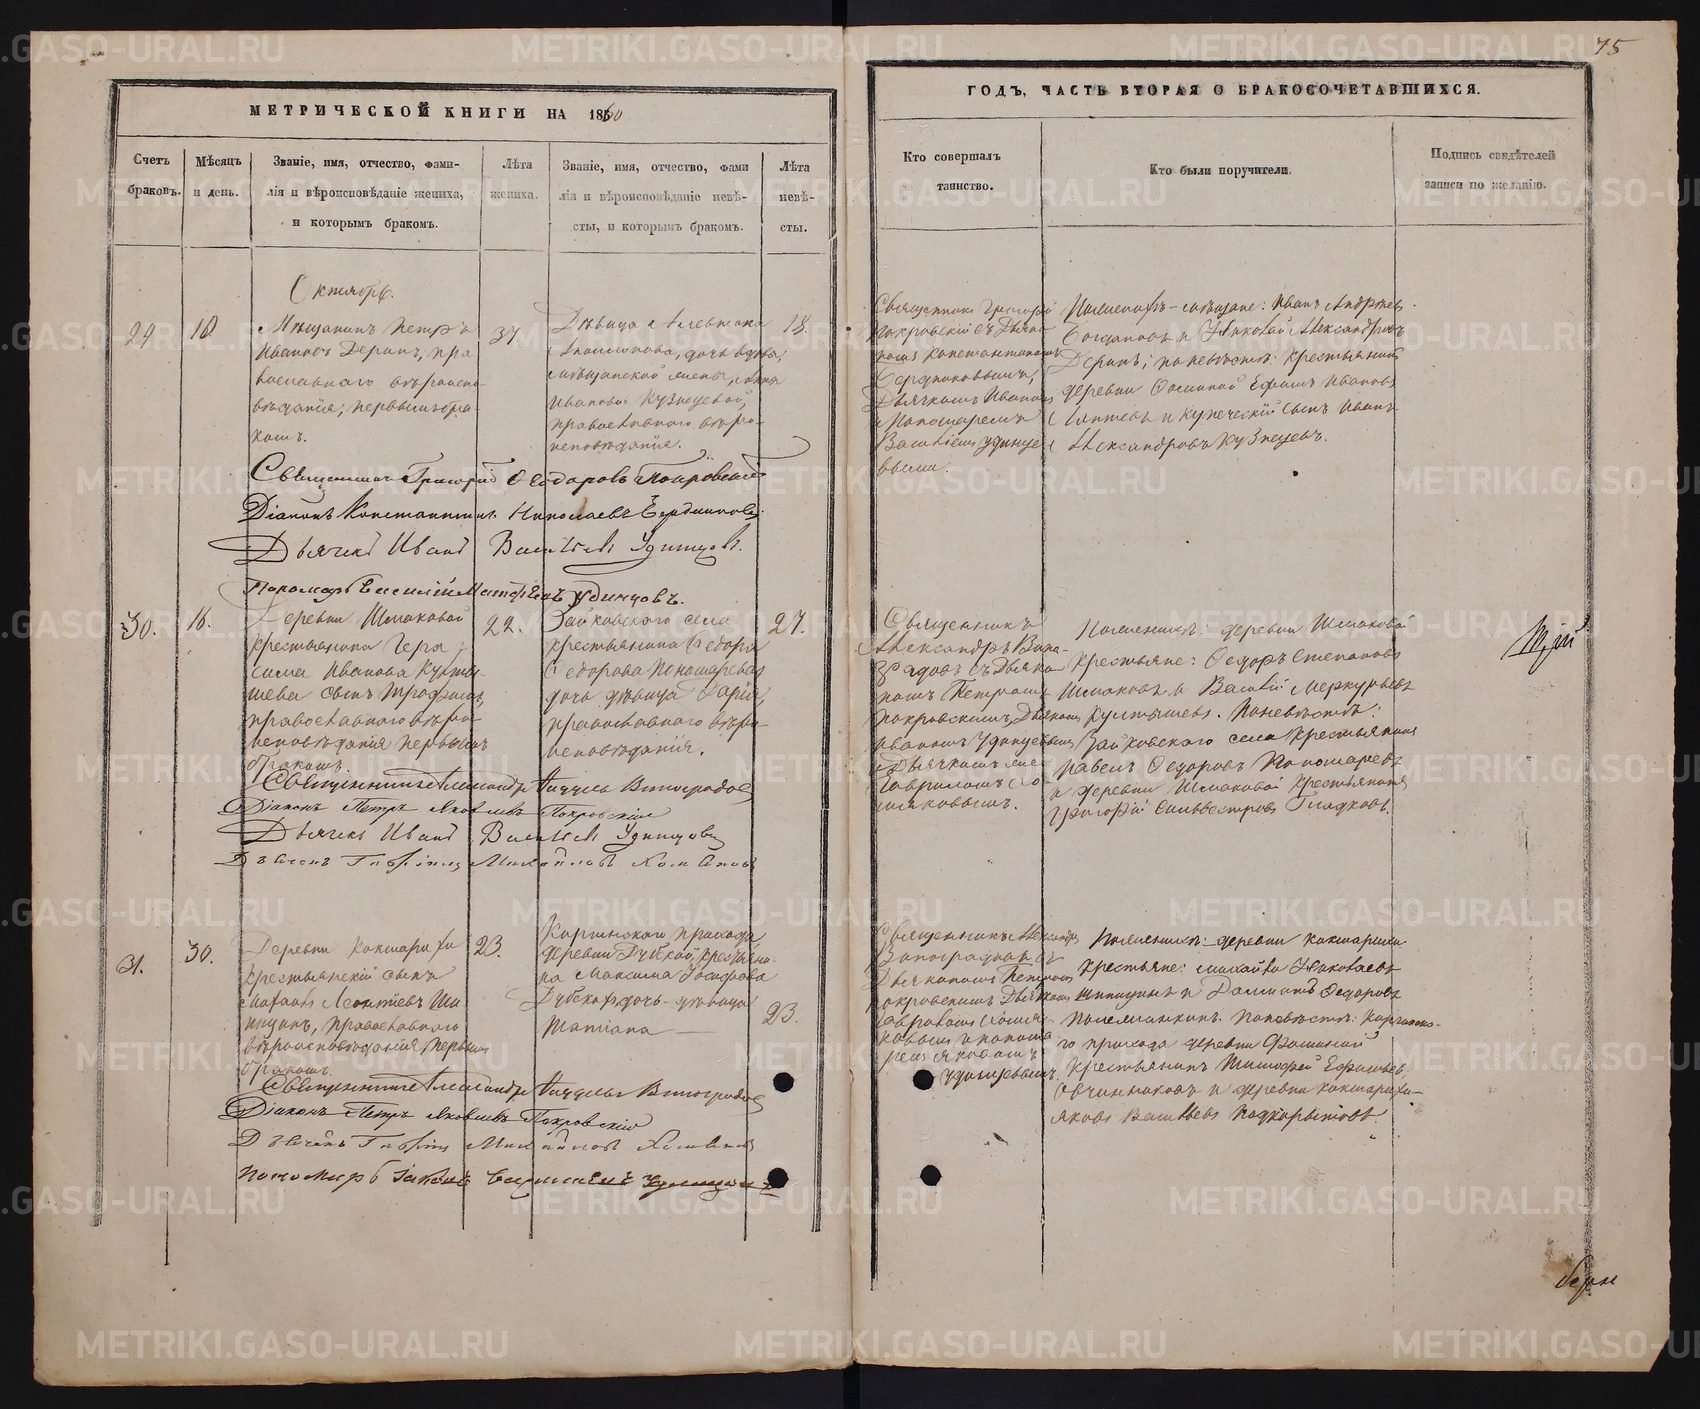 75
МЕТРИЧЕСКОЙ КНИГИ НА 1860
ГОДЪ, ЧАСТЬ ВТОРАЯ О БРАКОСОЧЕТАВШИХСЯ.
Счетъ
браковъ.
Мѣсяцъ
и день.
Званіе, имя, отчество, фами-
лія и вѣроисповѣданіе жениха,
и которымъ бракомъ.
Лѣта
жениха.
Званіе, имя, отчество, фами
лія и вѣроисповѣданіе невѣ-
сты, и которымъ бракомъ.
Лѣта
невѣ-
сты.
Кто совершалъ
таинство.
Кто были поручители.
Подпись свидѣтелей
записи по желанію.
Октябрь.
29
18
Мѣщанинъ Петръ
Ивановъ Деринъ, пра
вославнаго вѣроиспо-
вѣданія, первымъ бра-
комъ.
37
Дѣвица Алевтина
дочь вдовы,
мѣщанской жены, Анны
Ивановой Кузнецовой,
православнаго вѣро-
исповѣданія.
18.
Священникъ Григорій
Покровскій съ Діяко-
номъ Константиномъ
Бердниковымъ,
Дьячкомъ Иваномъ
и Пономаремъ
Василіемъ Удинце-
выми.
По женихѣ - мѣщане: Иванъ Андреевъ
Богдановъ и Николай Александровъ
Деринъ; по невѣстѣ: крестьянинъ
деревни Ефимъ Ивановъ
Лаптевъ и купеческій сынъ Иванъ
Александровъ Кузнецовъ.
Священникъ Григорій Ѳеодоровъ Покровскій
Діаконъ Константинъ Николаевъ Бердниковъ
Дьячекъ Иванъ Васильевъ Удинцовъ.
Пономарь Василій Матфеевъ Удинцовъ.
30.
16.
Деревни Шмаковой
крестьянина Гера
сима Иванова Култы
шева сынъ Трофимъ,
православнаго вѣро
исповѣданія первымъ
бракомъ.
22.
Зайковского села
крестьянина Ѳедора
Ѳедорова Пономарева
дочь дѣвица Дарья,
православнаго вѣро-
исповѣданія.
27.
Священникъ
Александръ Вино-
градовъ съ Діяко
номъ Петромъ
Покровскимъ, Дьячкомъ
Иваномъ Удинцевымъ
и Дьячкомъ
Гавриломъ Хо
мяковымъ.
По женихѣ: деревни Шмаковой
крестьяне: Ѳедоръ Степановъ
Шмаковъ и Василій Меркурьевъ
Култышевъ. По невѣстѣ:
Зайковского села крестьянинъ
Павелъ Ѳедоровъ Пономаревъ
и деревни Шмаковой крестьянинъ
Григорій Сильвестровъ Гладковъ.
Священникъ Александръ Виноградовъ
Діаконъ Петръ Яковлевъ Покровскій
Дьячекъ Иванъ Васильевъ Удинцовъ
Дьячекъ Гавріилъ Михайловъ Хомяковъ
31.
30.
Деревни Кокшарихи
крестьянскій сынъ
Леонтіевъ Ши
шицынъ, православнаго
вѣроисповѣданія, первымъ
бракомъ.
23.
Киргинского прихода
деревни крестьяни-
на Максима
дочь - дѣвица
Татіана
23.
Священникъ Александръ
Виноградовъ съ
Діякономъ Петромъ
Покровскимъ Дьячкомъ
Гавриломъ Хомя-
ковымъ и понома
ремъ Яковомъ
Удинцевымъ.
По женихѣ: деревни Кокшарихи
крестьяне: Михайло Николаевъ
и Ѳедоровъ
По невѣстѣ: Киргинско-
го прихода деревни Фоминой
крестьянинъ Тимофей Ефимовъ
Овчинниковъ и деревни Кокшарихи
Яковъ Васильевъ Подкорытовъ.
Священникъ Александръ Виноградовъ
Діаконъ Петръ Яковлевъ Покровскій
Дьячекъ Гавріилъ Михайловъ Хомяковъ
Пономарь Іаковъ Удинцовъ
METRIKI.GASO-URAL.RU